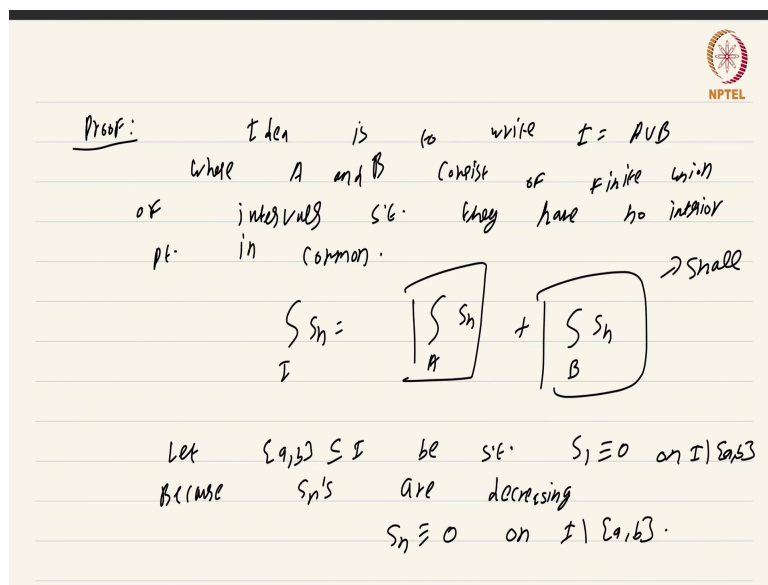 NPTEL
Proof: Idea is to write I = A∪B
where A and B consist of finite union
of intervals s.t. they have no interior
pt. in common.
→ small
∫_I Sn = ∫_A Sn + ∫_B Sn
Let [a,b] ⊆ I be s.t. S1 ≡ 0 on I\[a,b]
Because Sn's are decreasing
Sn ≡ 0 on I \ [a,b].